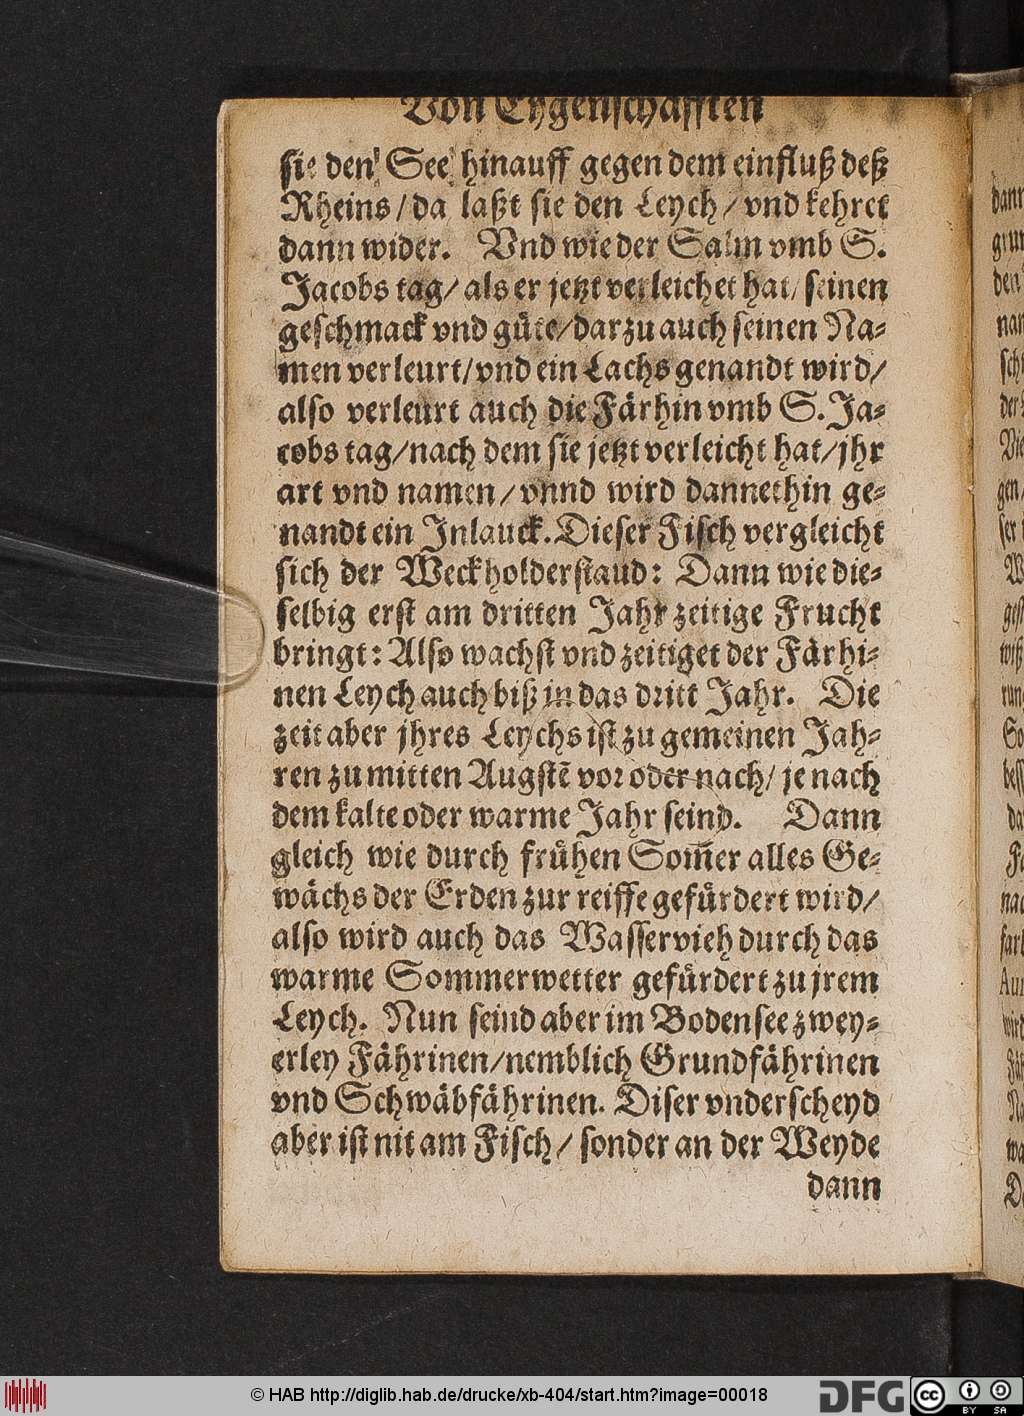 Von Eygenschafften
sie den See hinauff gegen dem einfluß deß
Rheins / da laßt sie den Leych / vnd kehret
dann wider. Vnd wie der Salm vmb S.
Jacobs tag / als er jetzt verleichet hat / seinen
geschmack vnd güte / darzu auch seinen Na-
men verleurt / vnd ein Lachs genandt wird /
also verleurt auch die Färhin vmb S. Ja-
cobs tag / nach dem sie jetzt verleicht hat / jhr
art vnd namen / vnnd wird dannethin ge-
nandt ein Inlauck. Dieser Fisch vergleicht
sich der Weckholderstaud: Dann wie die-
selbig erst am dritten Jahr zeitige Frucht
bringt: Also wachst vnd zeitiget der Färhi-
nen Leych auch biß in das dritt Jahr. Die
zeit aber jhres Leychs ist zu gemeinen Jah-
ren zu mitten Augstē vor oder nach / je nach
dem kalte oder warme Jahr seind. Dann
gleich wie durch frühen Som̃er alles Ge-
wächs der Erden zur reiffe gefürdert wird /
also wird auch das Wasservieh durch das
warme Sommerwetter gefürdert zu jrem
Leych. Nun seind aber im Bodensee zwey-
erley Fährinen / nemblich Grundfährinen
vnd Schwäbfährinen. Diser vnderscheyd
aber ist nit am Fisch / sonder an der Weyde
dann
© HAB http://diglib.hab.de/drucke/xb-404/start.htm?image=00018
DFG
cc BY SA